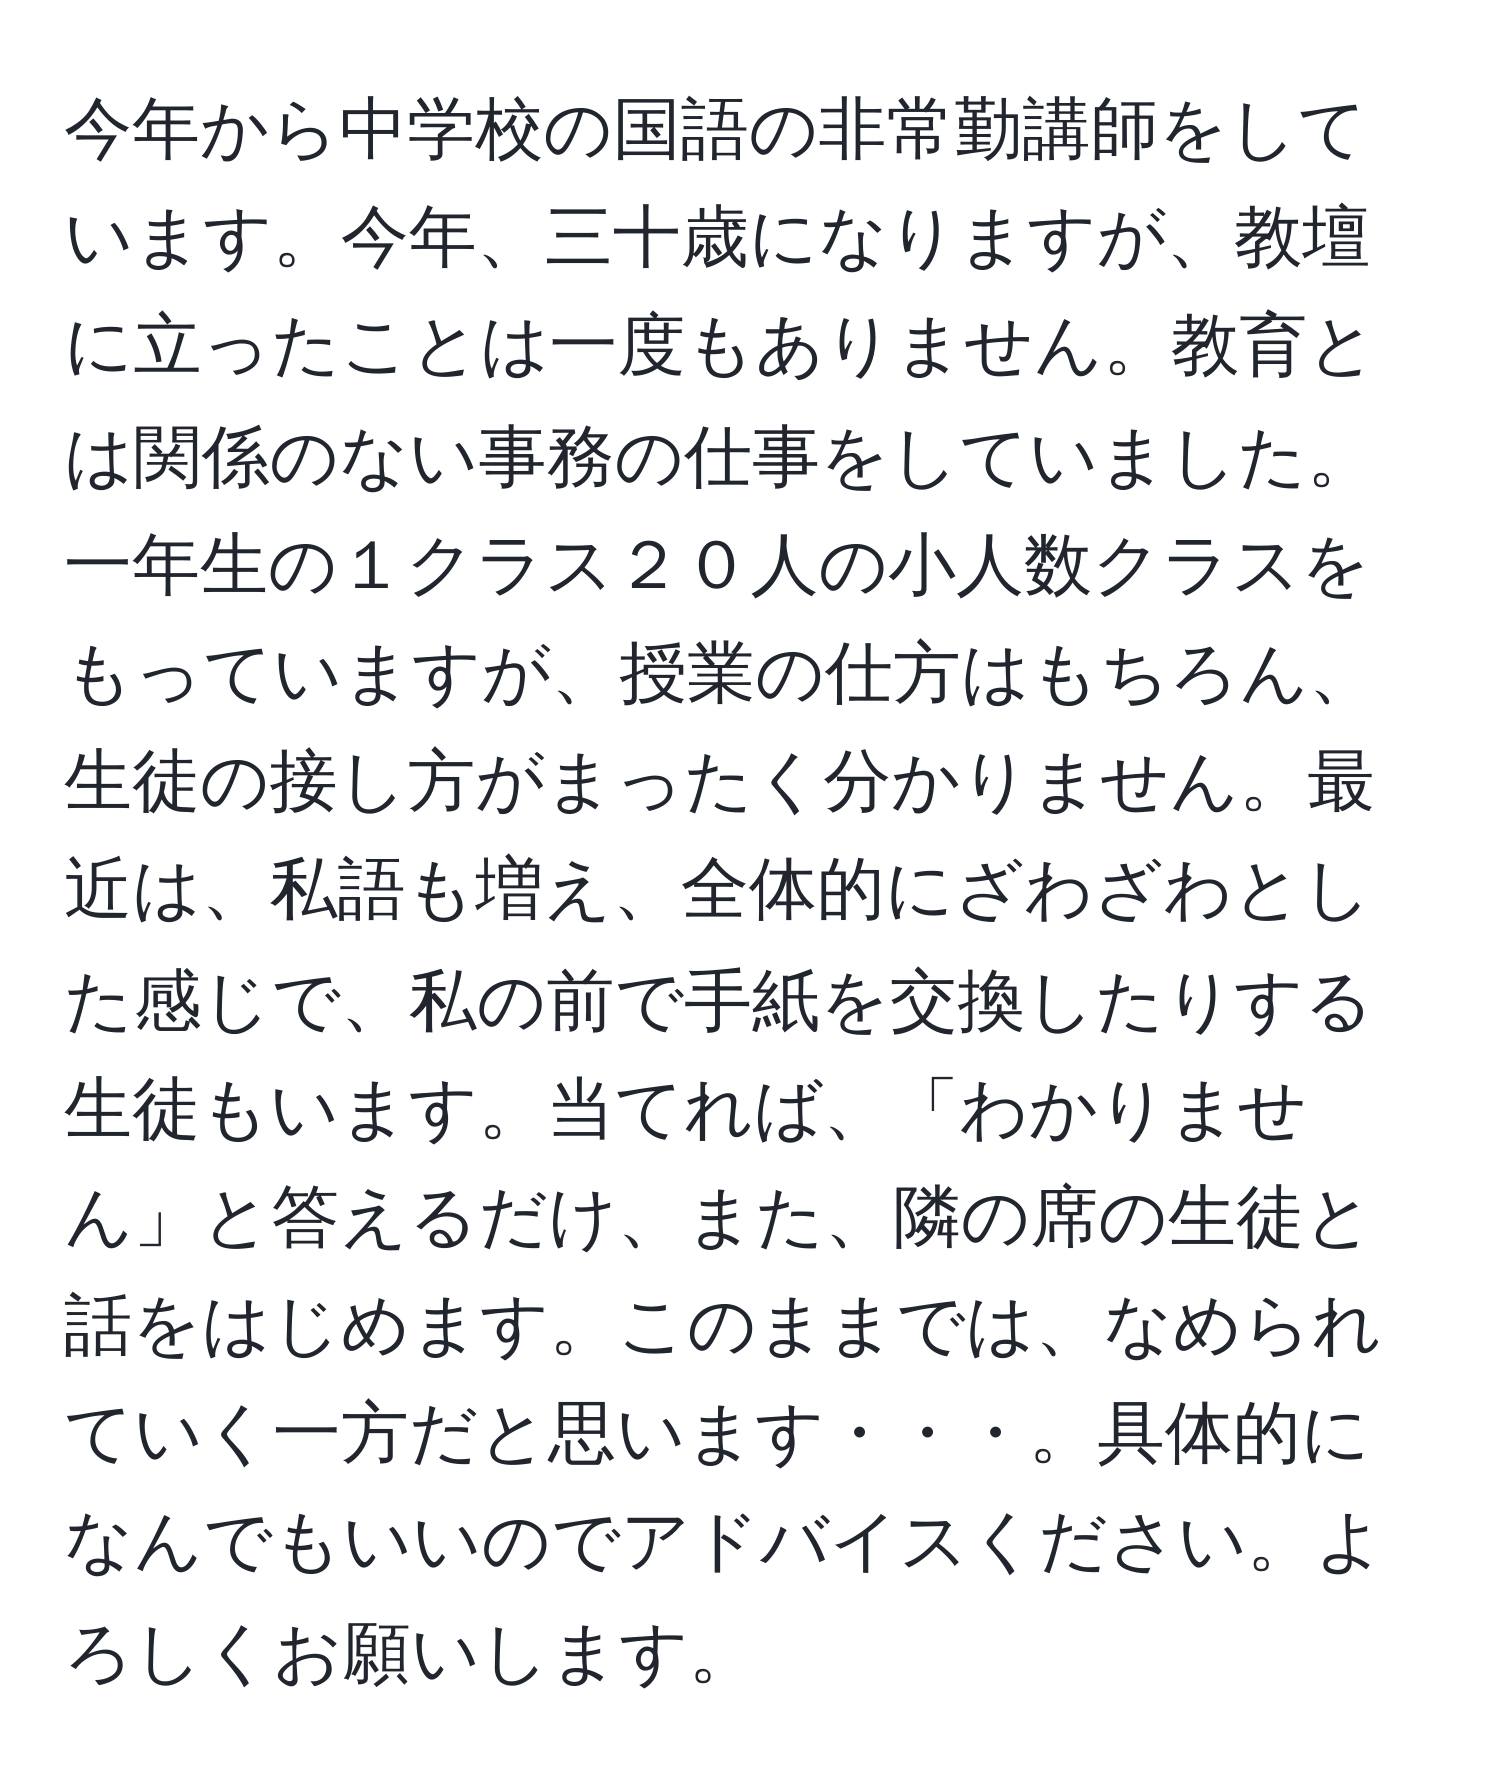 今年から中学校の国語の非常勤講師をして
います。今年、三十歳になりますが、教壇
に立ったことは一度もありません。教育と
は関係のない事務の仕事をしていました。
一年生の１クラス２０人の小人数クラスを
もっていますが、授業の仕方はもちろん、
生徒の接し方がまったく分かりません。最
近は、私語も増え、全体的にざわざわとし
た感じで、私の前で手紙を交換したりする
生徒もいます。当てれば、「わかりませ
ん」と答えるだけ、また、隣の席の生徒と
話をはじめます。このままでは、なめられ
ていく一方だと思います・・・。具体的に
なんでもいいのでアドバイスください。よ
ろしくお願いします。